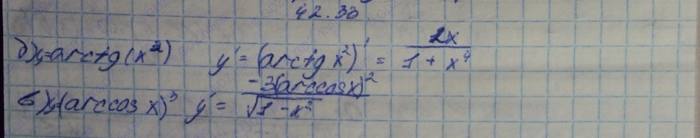 42.33
б) y=arctg(x²) y' = (arctg x²)' = 2x / 1 + x⁴
в) y=(arccos x)³ y' = -3(arccosx)² / √1 - x²